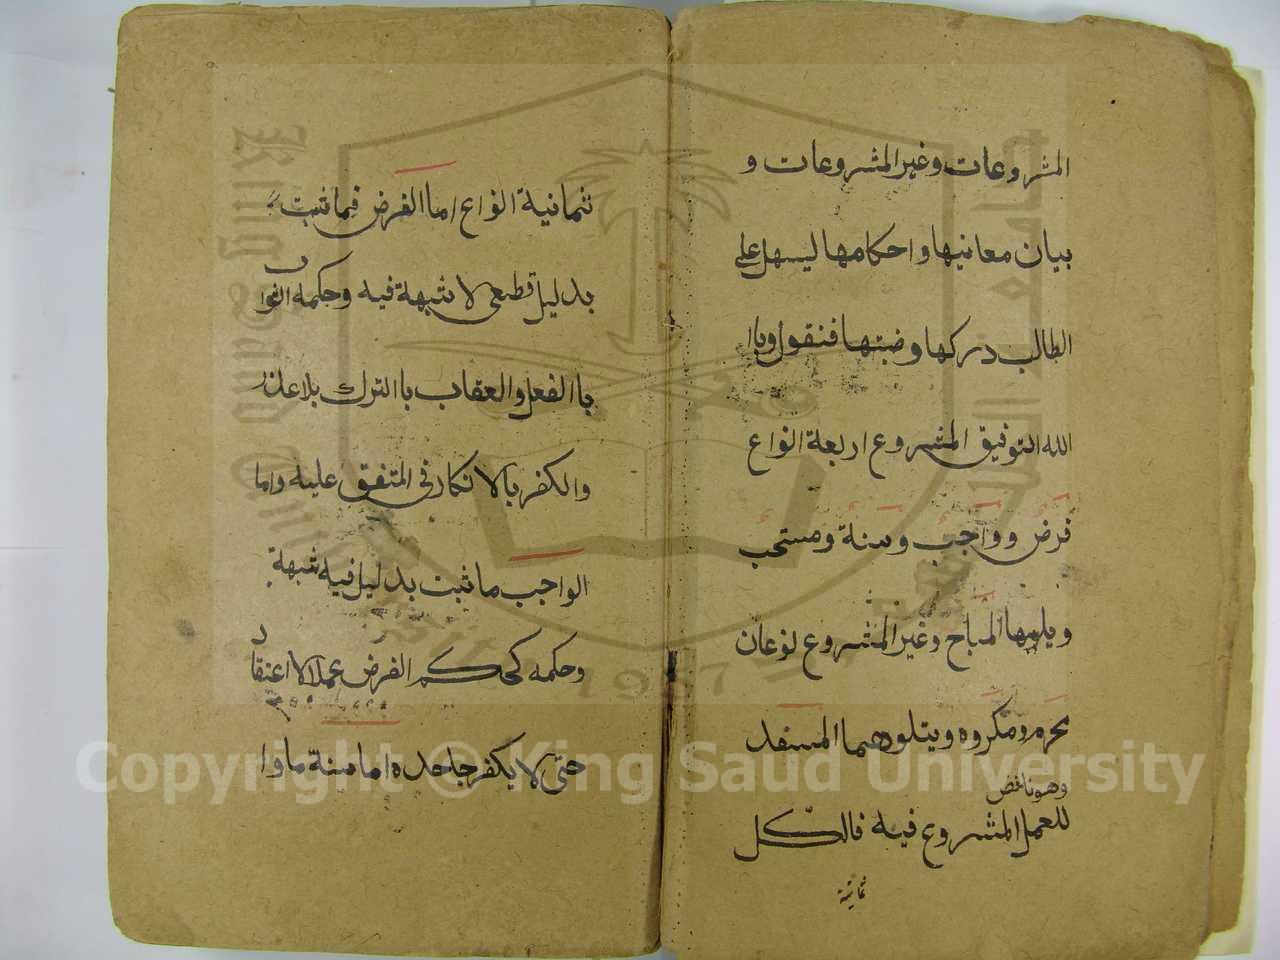 المشروعات وغير المشروعات و
بيان معانيها واحكامها ليسهل على
الطالب دركها وضبتها فنقول وباا
الله التوفيق المشروع اربعة انواع
فرض وواجب وسنة ومستحب
ويليها المباح وغير المشروع نوعان
محرم ومكروه ويتلوهما المسفد
وهو ناقض
للعمل المشروع فيه فالكل
ثمانية
ثمانية انواع اما الفرض فما ثبت
بدليل قطعى لا شبهة فيه وحكمه الثواب
باالفعل والعقاب باالترك بلا عذر
والكفر بالانكار فى المتفق عليه واما
الواجب ما ثبت بدليل فيه شبهة
وحكمه كحكم الفرض عملا لا اعتقاد
حتى لا يكفر جاحده اما سنة ماوا
Copyright © King Saud University
King Saud University
1957